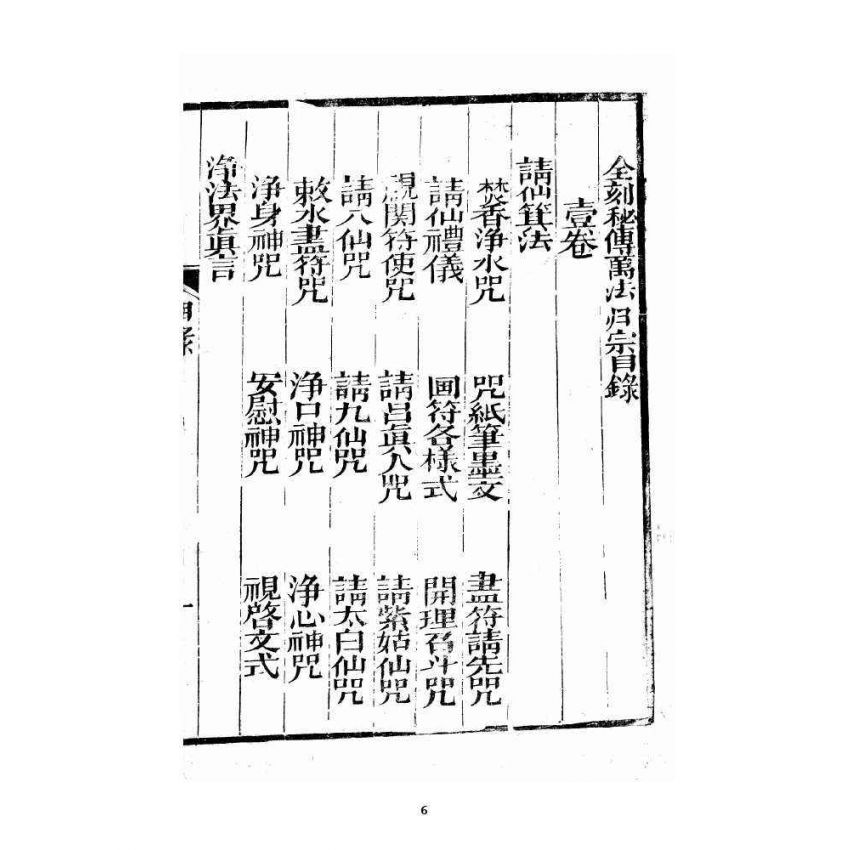 全刻秘傳萬法归宗目錄
壹卷
請仙箕法
焚香淨水咒 咒紙筆墨文 畫符請先咒
請仙禮儀 画符各樣式 開理召斗咒
關符使咒 請呂眞人咒 請紫姑仙咒
請八仙咒 請九仙咒 請太白仙咒
敕水畫符咒 淨口神咒 淨心神咒
淨身神咒 安慰神咒 視啓文式
淨法界眞言
目录
一
6